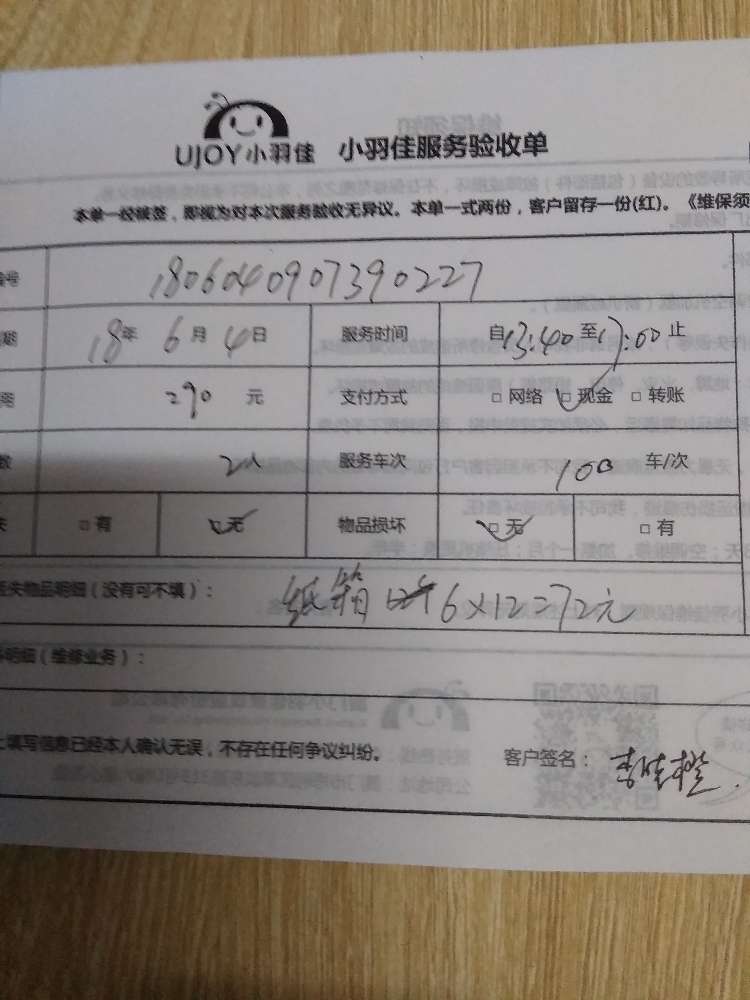 UJOY小羽佳 小羽佳服务验收单
本单一经核签，即视为对本次服务验收无异议。本单一式两份，客户留存一份(红)。《维保须
号 1806040907390227
期 18年 6月 4日 服务时间 自13:40至17:00止
290 元 支付方式 □网络 □现金 □转账
数 2人 服务车次 100 车/次
失 □有 □无 物品损坏 □无 □有
丢失物品明细（没有可不填）： 纸箱 6×12=72元
明细（维修业务）：
上填写信息已经本人确认无误，不存在任何争议纠纷。 客户签名：